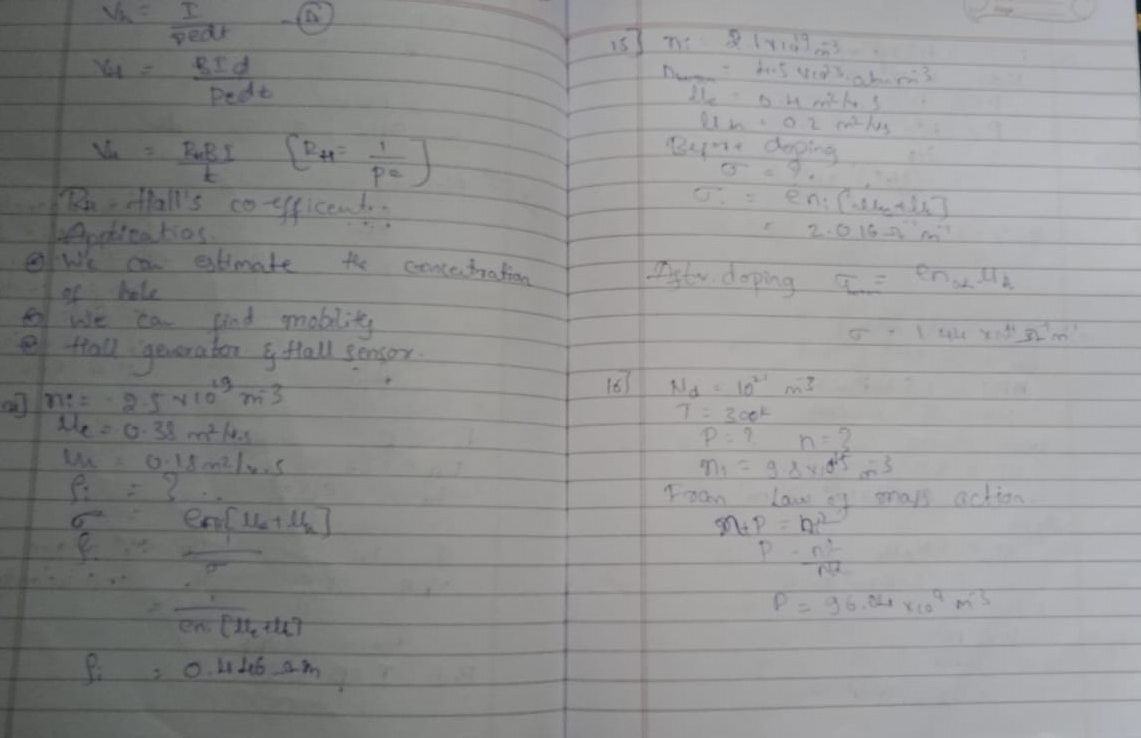 V_H = I / pedt
V_H = BId / pedt
V_H = R_H BI / t [R_H = 1 / pe]
R_H - Hall's co-efficent.
Application.
We can estimate the concentration
of hole
We can find mobility
Hall generator & Hall sensor.
ni = 2.5 × 10^19 m^-3
μe = 0.38 m²/v.s
μh = 0.18 m²/v.s
ρi = ?
σ = eni[μe + μh]
ρi = 1 / σ
= 1 / eni[μe + μh]
ρi = 0.446 Ωm
15] ni = 2.1 × 10^19 m^-3
= 4.5 × 10^23 m^-3
μe = 0.4 m²/v.s
μh = 0.2 m²/vs
Before doping
σ = ?
σi = eni[μe + μh]
= 2.016 Ω^-1 m^-1
After doping σ = e μh
σ = 1.44 × 10^4 Ω^-1 m^-1
16] Nd = 10^21 m^-3
T = 300K
P = ? n = ?
ni = 9.8 × 10^15 m^-3
From Law of mass action
n + P = ni²
P = ni² / Nd
P = 96.04 × 10^9 m^-3